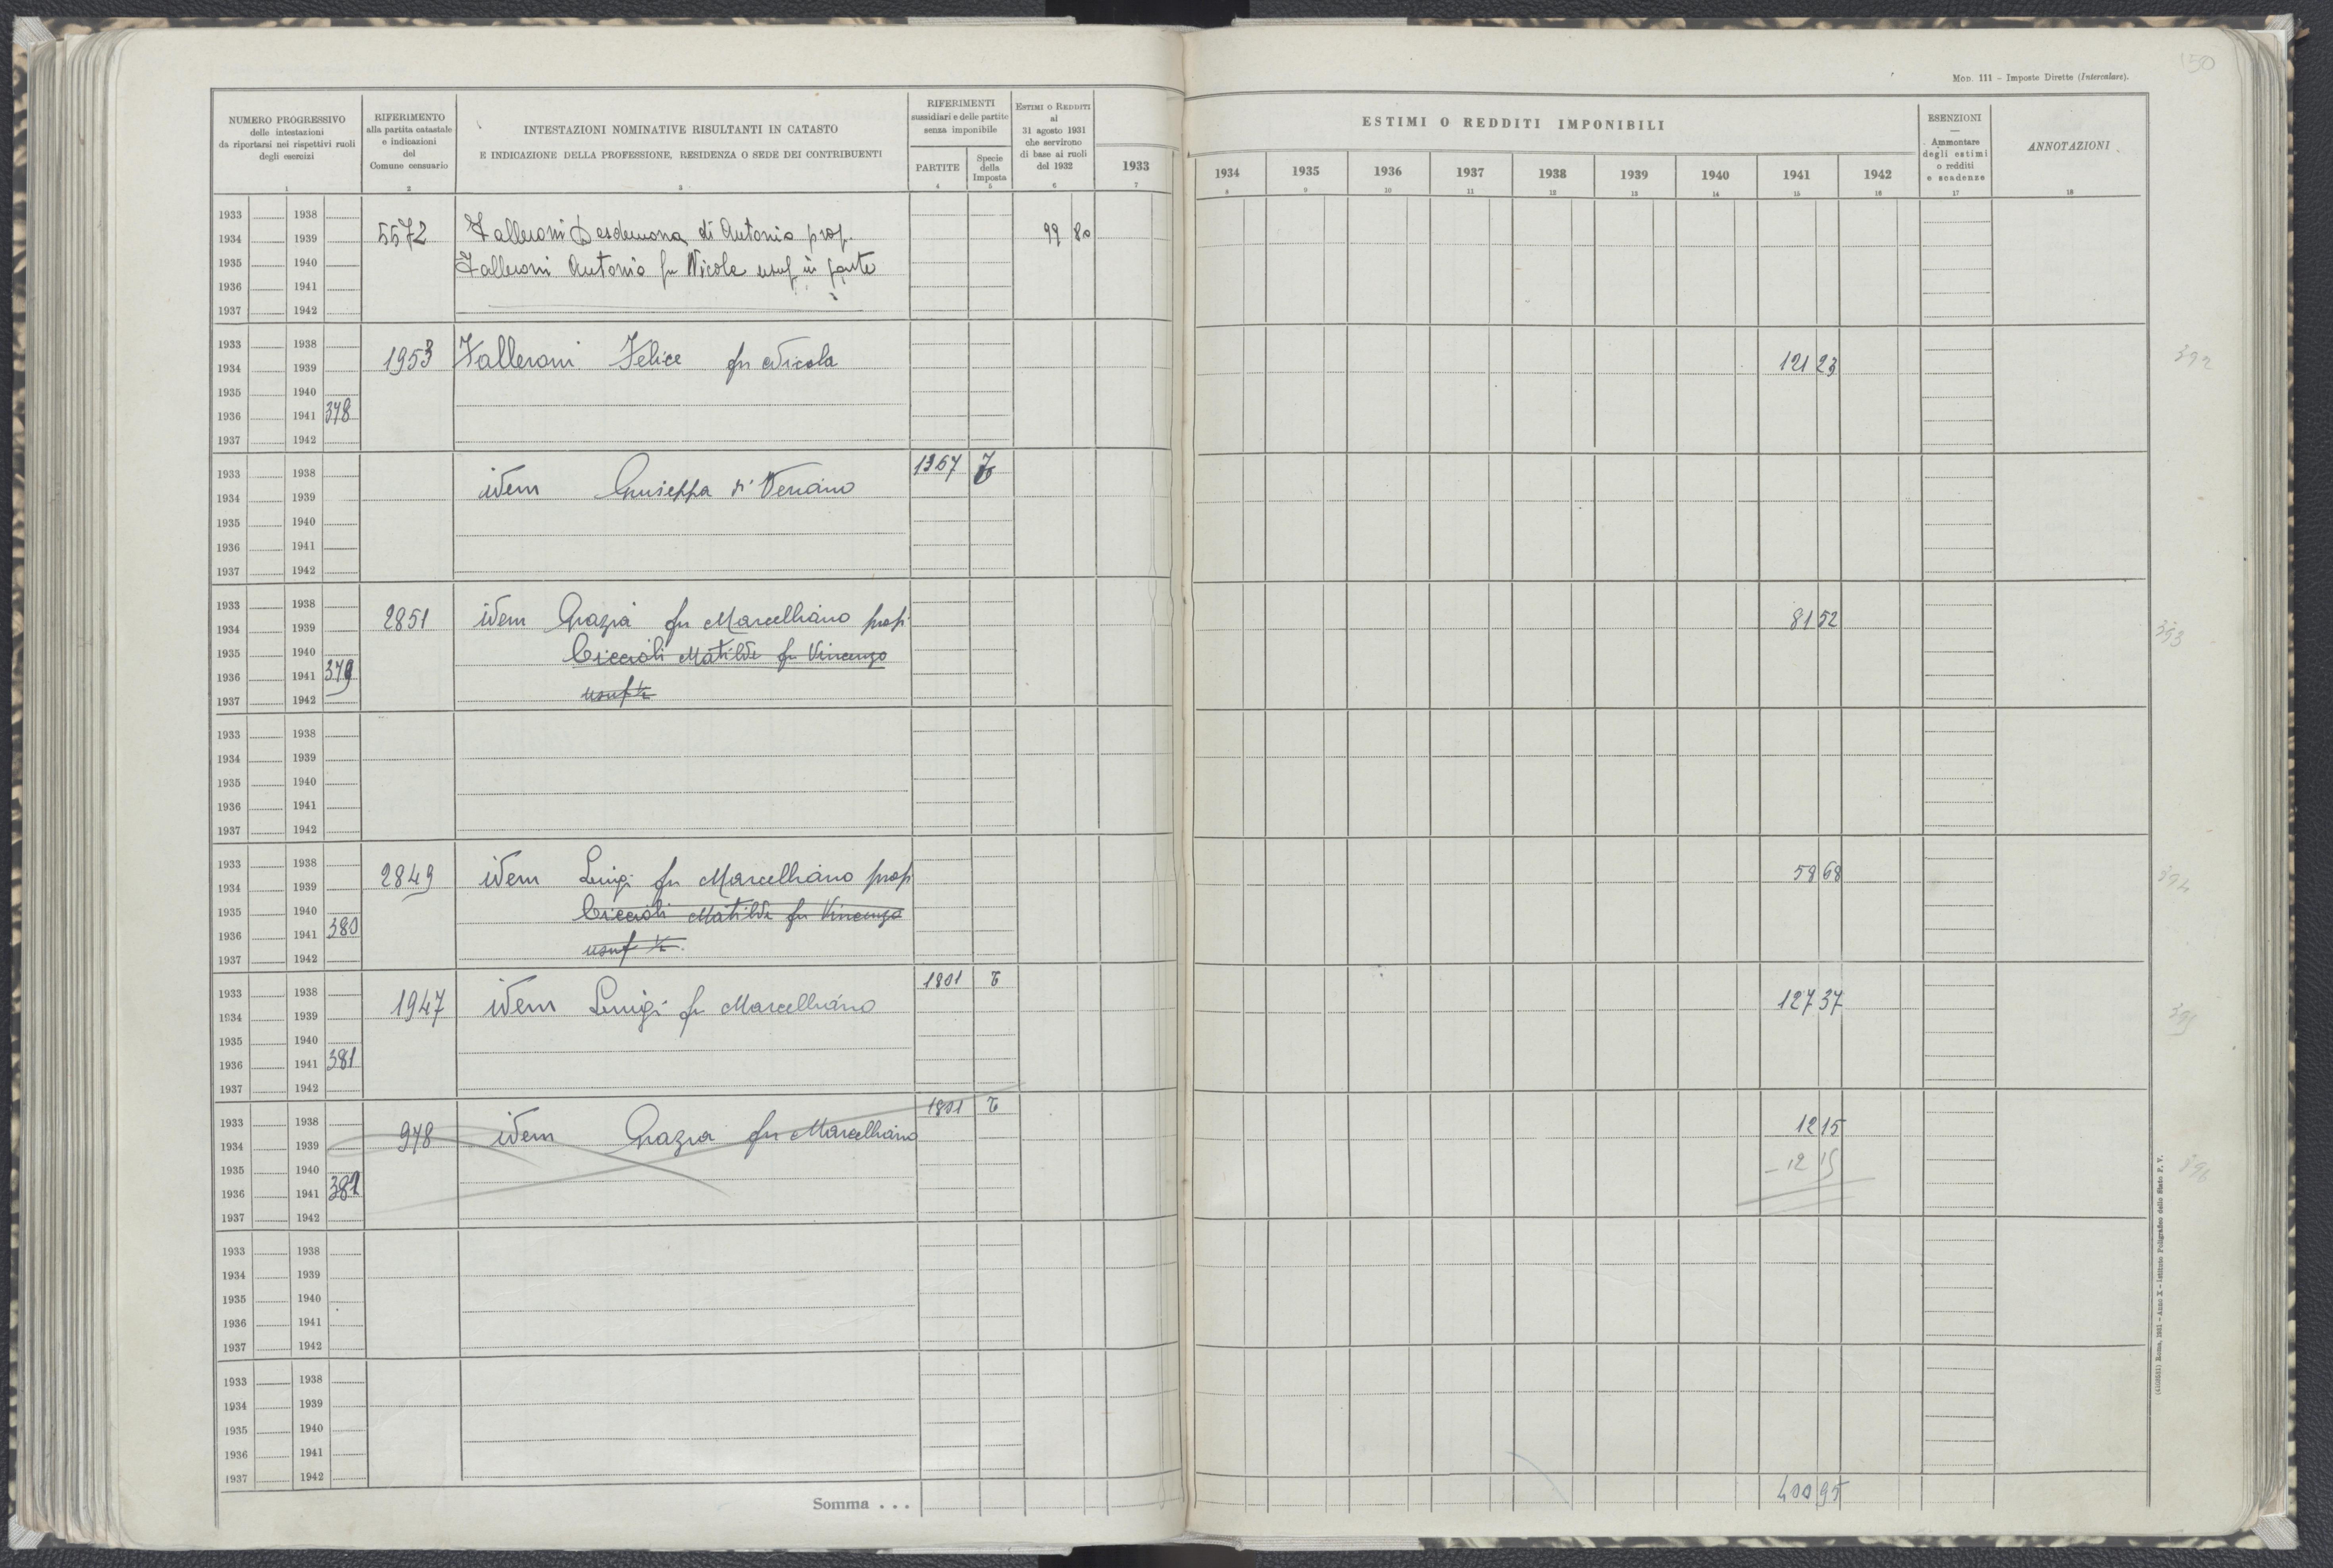 150
MOD. 111 - Imposte Dirette (Intercalare).
NUMERO PROGRESSIVO
delle intestazioni
da riportarsi nei rispettivi ruoli
degli esercizi
1
RIFERIMENTO
alla partita catastale
e indicazioni
del
Comune censuario
2
INTESTAZIONI NOMINATIVE RISULTANTI IN CATASTO
E INDICAZIONE DELLA PROFESSIONE, RESIDENZA O SEDE DEI CONTRIBUENTI
3
RIFERIMENTI
sussidiari e delle partite
senza imponibile
PARTITE
4
Specie
della
Imposta
5
ESTIMI O REDDITI
al
31 agosto 1931
che servirono
di base ai ruoli
del 1932
6
1933
7
ESTIMI O REDDITI IMPONIBILI
1934 1935 1936 1937 1938 1939 1940 1941 1942
8 9 10 11 12 13 14 15 16
ESENZIONI
—
Ammontare
degli estimi
o redditi
e scadenze
17
ANNOTAZIONI
18
1933 1938
1934 1939 5572 Falleroni Desdemona di Antonio prop. 99 80
1935 1940 Falleroni Antonio fu Nicola usuf in parte
1936 1941
1937 1942
1933 1938
1934 1939 1953 Falleroni Felice fu Nicola 121 23 392
1935 1940
1936 1941 378
1937 1942
1933 1938 1367 T
1934 1939 idem Giuseppa di Venanzo
1935 1940
1936 1941
1937 1942
1933 1938
1934 1939 2851 idem Grazia fu Marcelliano prop. 81 52 393
1935 1940 Ciccioli Matilde fu Vincenzo
1936 1941 379
1937 1942 usuf ½
1933 1938
1934 1939
1935 1940
1936 1941
1937 1942
1933 1938
1934 1939 2849 idem Luigi fu Marcelliano prop 58 68 394
1935 1940 Ciccioli Matilde fu Vincenzo
1936 1941 380
1937 1942 usuf ½.
1933 1938 1801 T
1934 1939 1947 idem Luigi fu Marcelliano 127 37 395
1935 1940
1936 1941 381
1937 1942
1933 1938 1801 T
1934 1939 978 idem Grazia fu Marcelliano 12 15
1935 1940 - 12 15 396
1936 1941 382
1937 1942
1933 1938
1934 1939
1935 1940
1936 1941
1937 1942
1933 1938
1934 1939
1935 1940
1936 1941
1937 1942
Somma . . . 400 95
Roma, 1931 - Anno X - Istituto Poligrafico dello Stato P. V.